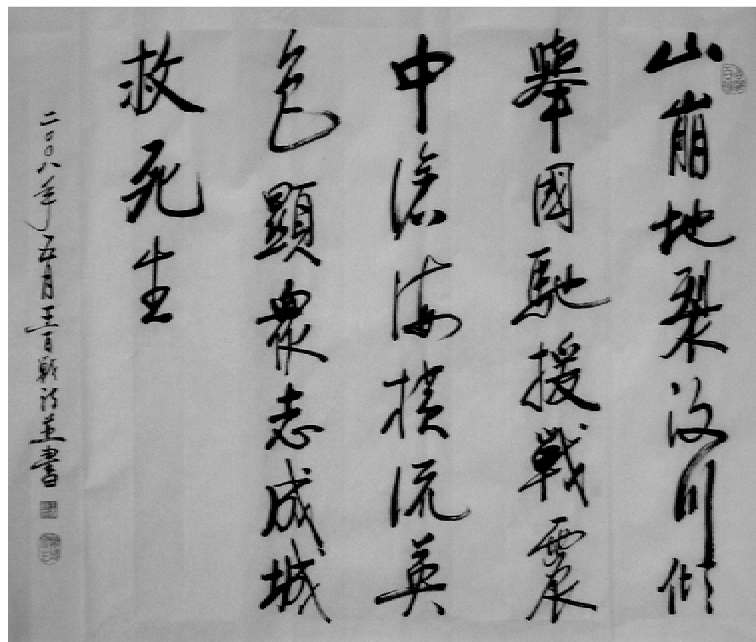 山崩地裂汶川傾
舉國馳援戰震
中滄海橫流英
色顯眾志成城
救死生
二〇〇八年五月王百戰詩並書